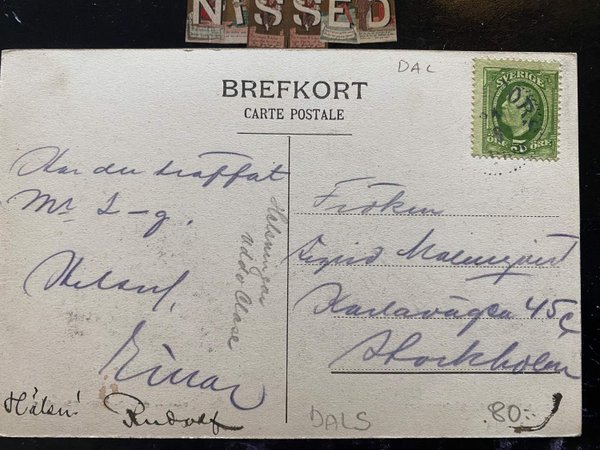 NISSED
DAL
BREFKORT
CARTE POSTALE
SVERIGE
5
ÖRE
Har du träffat
Mr L-g.
Einar
Häls!
Rudolf
Hälsningar
Fröken
Sigrid Malmqvist
Karlavägen 45
Stockholm
DALS
80:-